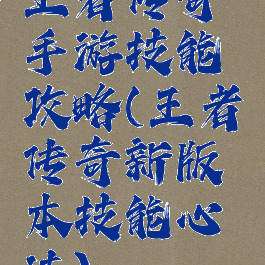 王者传奇
手游技能
攻略(王者
传奇新版
本技能心